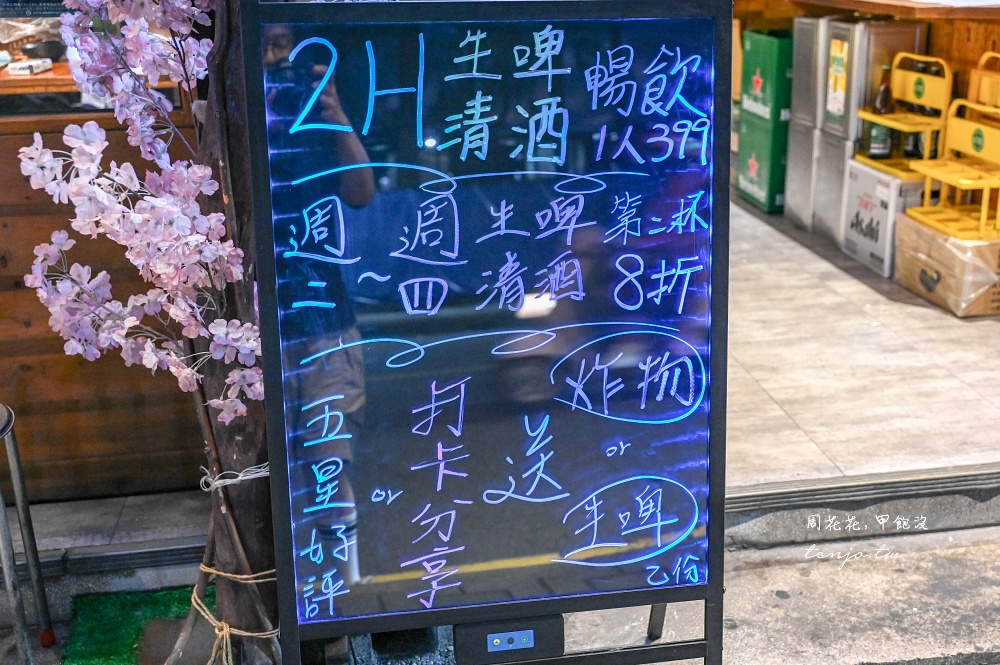 2H 生啤 暢飲
清酒 1人399
週二~週四 生啤 第二杯
清酒 8折
五星好評 or 打卡分享 送 炸物
or
生啤
乙份
Heineken
Asahi
周花花,甲飽沒
tenjo.tw